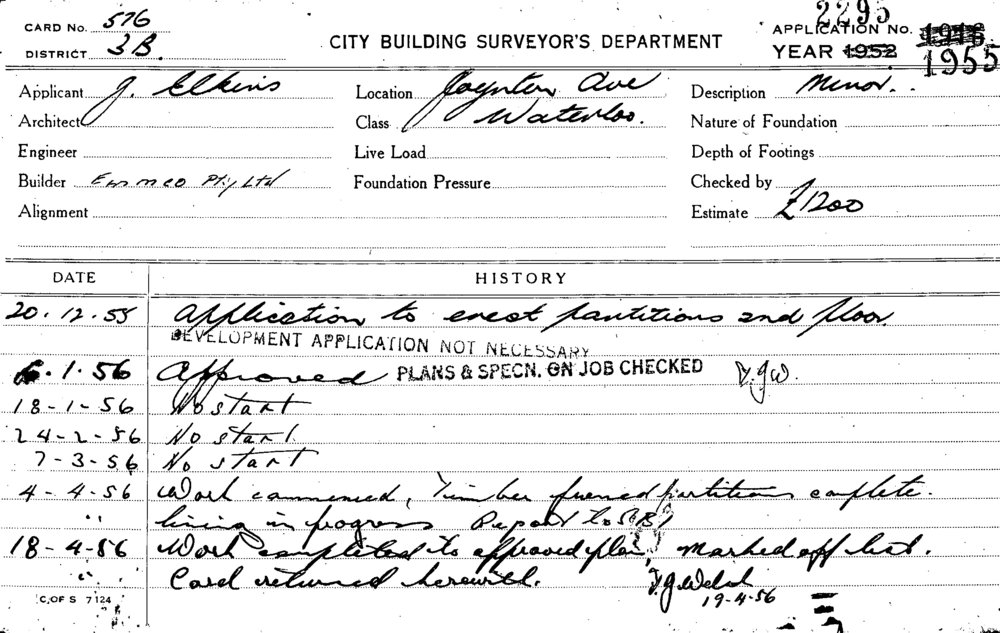 CARD No. 576
DISTRICT 3B.
CITY BUILDING SURVEYOR'S DEPARTMENT
2295
APPLICATION No.
YEAR 1952 1955
Applicant J. Elkins
Location Joynton Ave
Description Minor.
Architect
Class Waterloo.
Nature of Foundation
Engineer
Live Load
Depth of Footings
Builder Emmco Pty Ltd
Foundation Pressure
Checked by
Alignment
Estimate £1200
DATE HISTORY
20.12.55 Application to erect partitions and floor.
DEVELOPMENT APPLICATION NOT NECESSARY
6.1.56 Approved PLANS & SPECN. ON JOB CHECKED
18-1-56 No start
24-2-56 No start.
7-3-56 No start
4-4-56 Work commenced, Timber framed partitions complete.
" lining in progress Report to
18-4-56 Work completed to approved plan, marked off list.
" Card returned herewith.
19-4-56
C. OF S 7124